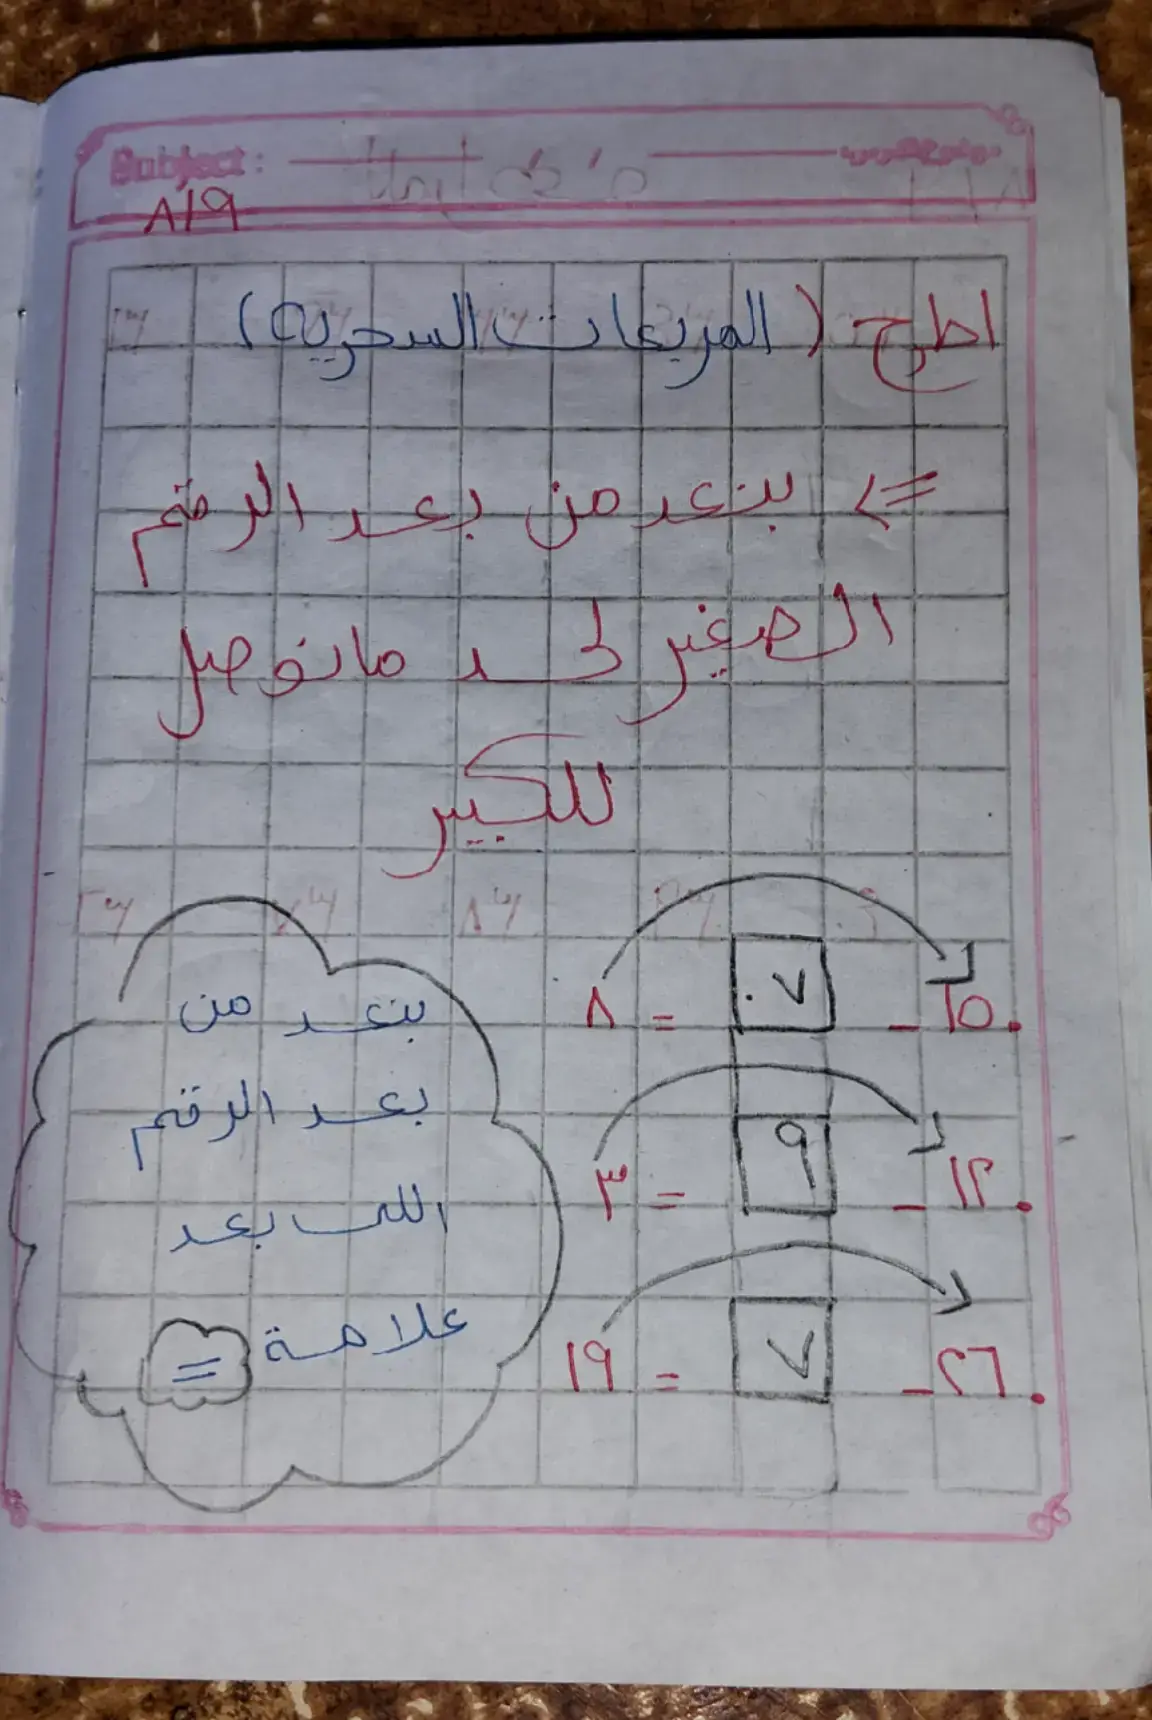 Subject :
٨/٩
اطرح ( المربعات السحرية )
<= بنعد من بعد الرقم
الصغير لحد مانوصل
للكبير
١٥ - ٧ = ٨
١٢ - ٩ = ٣
٢٦ - ٧ = ١٩
بنعد من
بعد الرقم
اللى بعد
علامة =